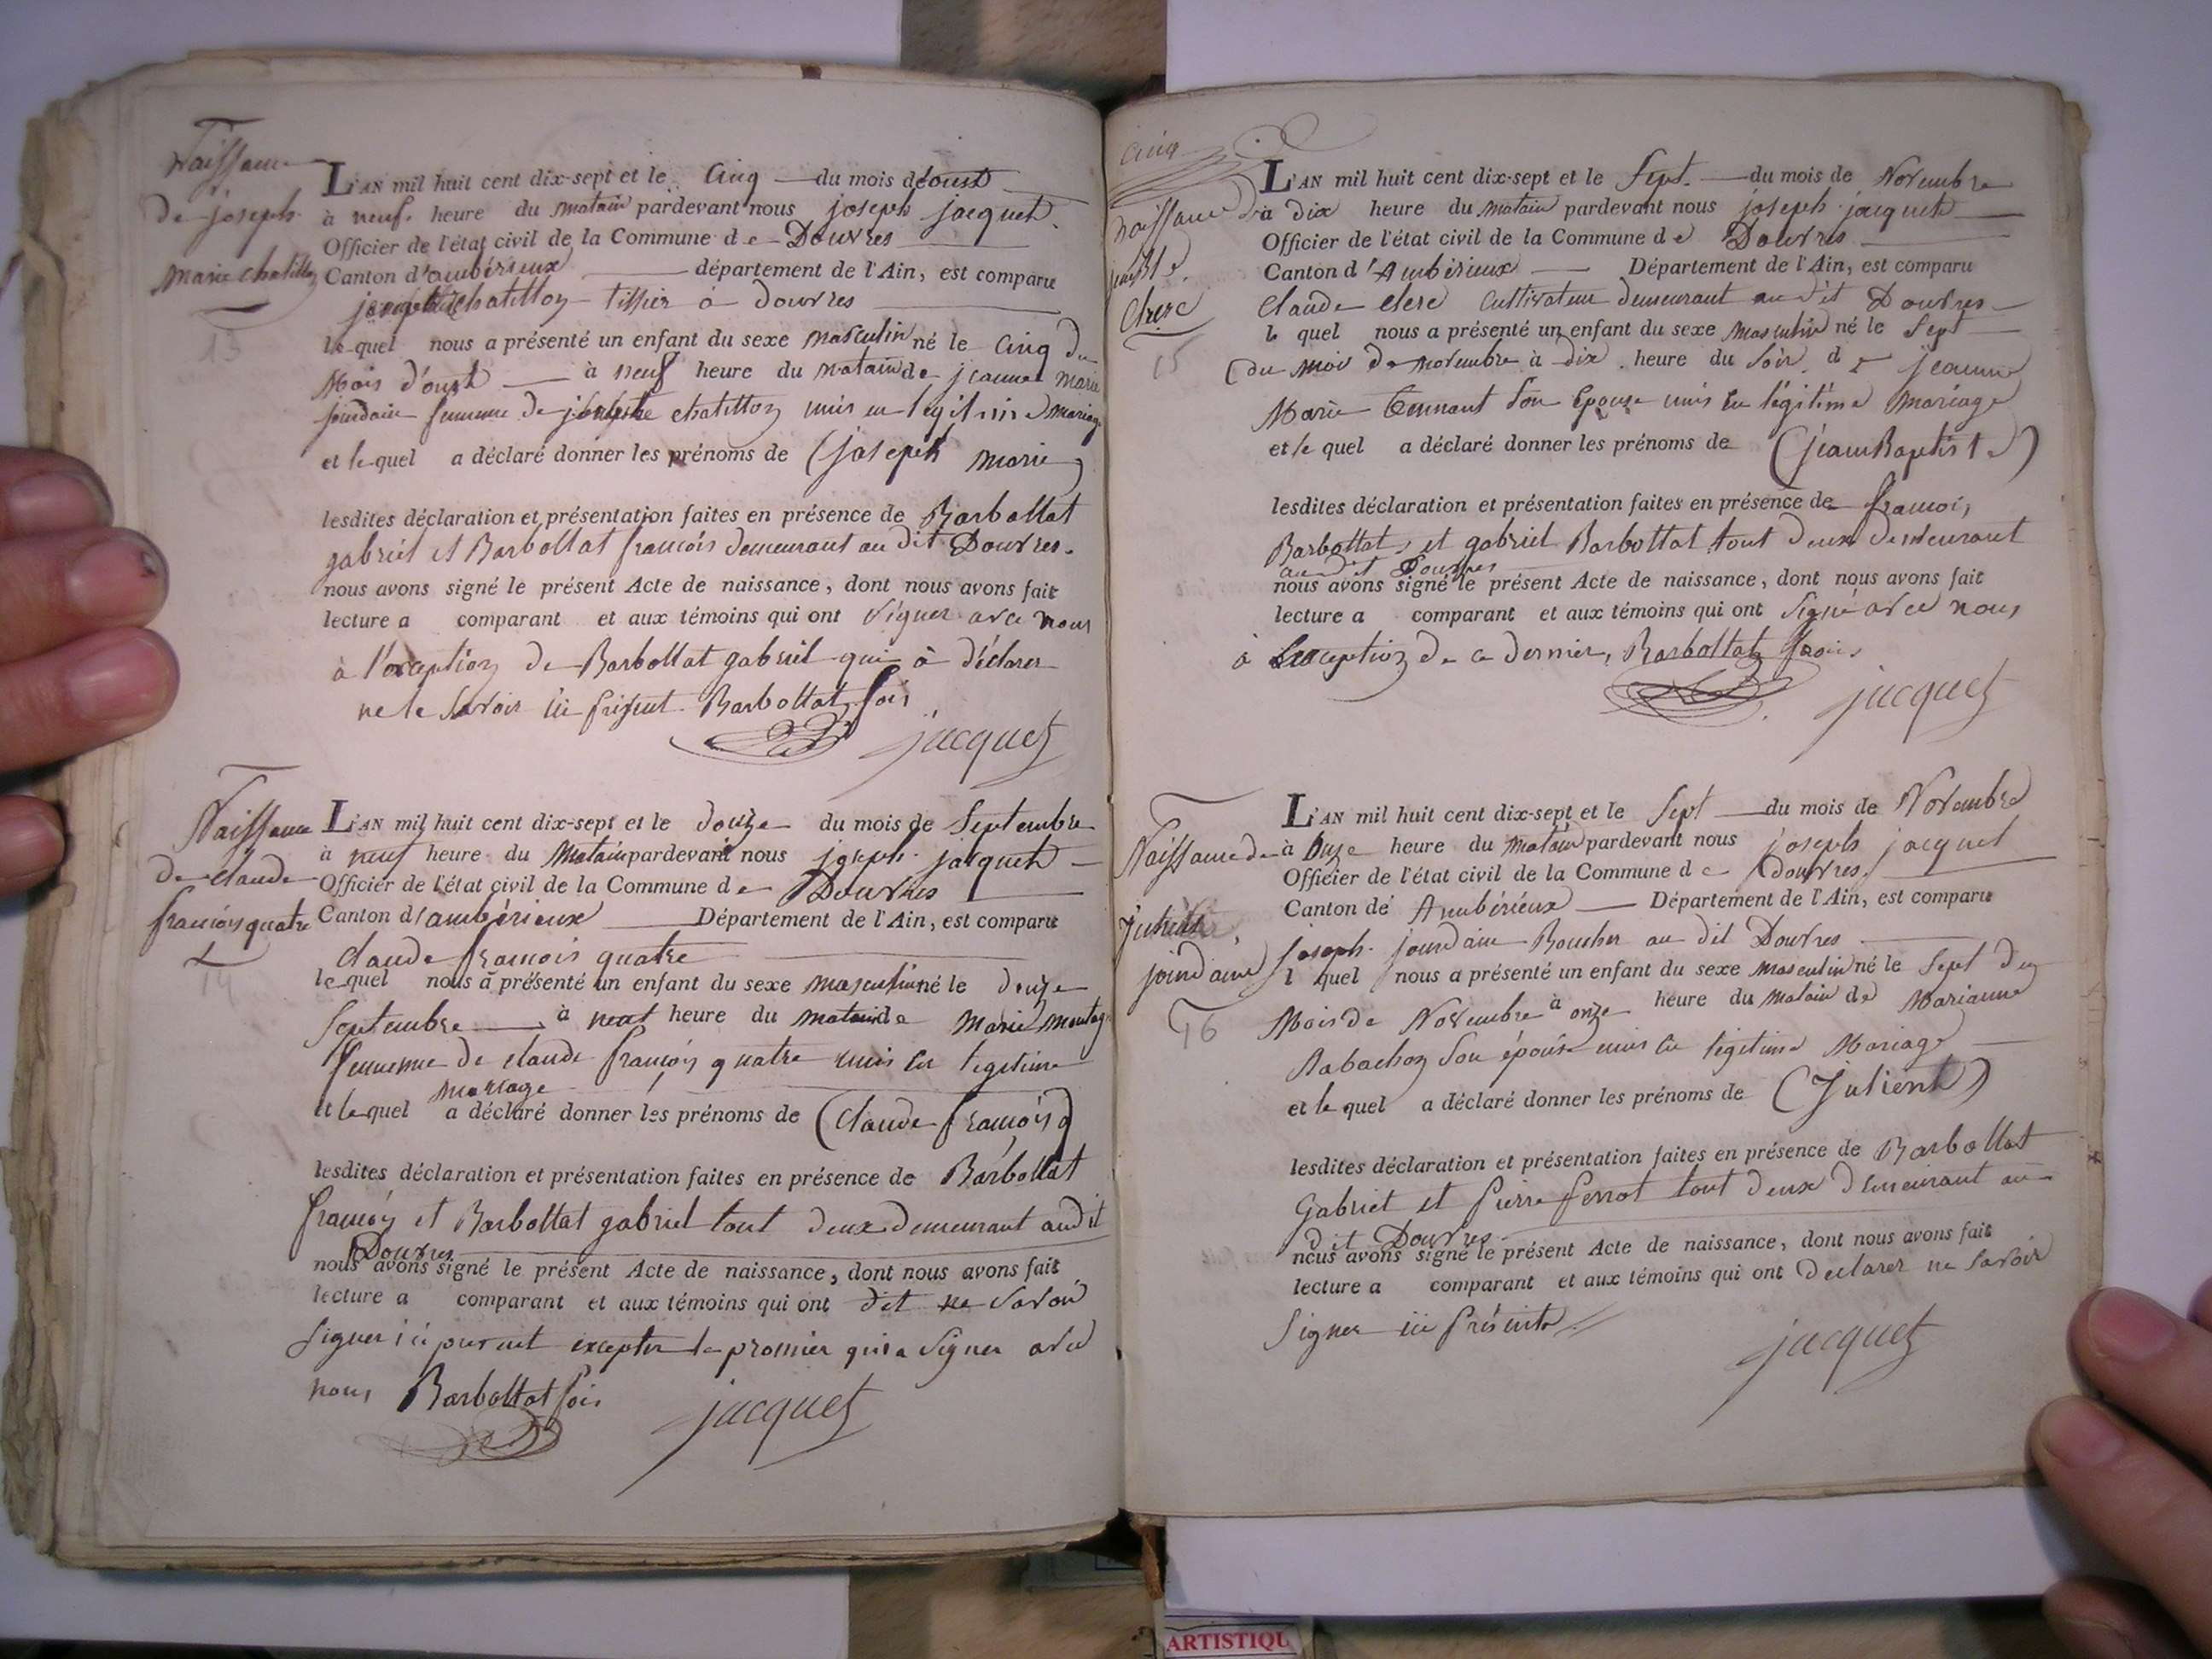 Naissance
de joseph
marie chatillon
13
L'AN mil huit cent dix-sept et le Cinq du mois d'oust
à neuf heure du matain pardevant nous joseph jacquet
Officier de l'état civil de la Commune de Douvres
Canton d'ambérieux département de l'Ain, est comparu
chatillon tissier à douvres
le quel nous a présenté un enfant du sexe masculin né le cinq du
Mois d'oust à neuf heure du matain de jeanne marie
jourdain femme de chatillon unis en légitime mariage
et le quel a déclaré donner les prénoms de (joseph marie)
lesdites déclaration et présentation faites en présence de Barbollat
gabriel et Barbollat francois demeurant au dit Douvres.
nous avons signé le présent Acte de naissance, dont nous avons fait
lecture a comparant et aux témoins qui ont signer avec nous
à l'exception de Barbollat gabriel qui à déclarer
ne le savoir Barbollat fois
jacquet
Naissance
de claude
francois quatre
14
L'AN mil huit cent dix-sept et le douze du mois de Septembre
à neuf heure du Matain pardevant nous joseph jacquet
Officier de l'état civil de la Commune de Douvres
Canton d'ambérieux Département de l'Ain, est comparu
claude francois quatre
le quel nous a présenté un enfant du sexe masculin né le douze
Septembre à neuf heure du matain de Marie
femme de claude francois quatre unis en legitime
mariage
et le quel a déclaré donner les prénoms de (claude francois)
lesdites déclaration et présentation faites en présence de Barbollat
francois et Barbollat gabriel tout deux demeurant audit
Douvres
nous avons signé le présent Acte de naissance, dont nous avons fait
lecture a comparant et aux témoins qui ont dit ne savoir
signer excepter le promier qui a signer avec
nous Barbollat fois
jacquet
cinq
naissance de
Clerc
15
L'AN mil huit cent dix-sept et le sept du mois de Novembre
à dix heure du matain pardevant nous joseph jacquet
Officier de l'état civil de la Commune de Douvres
Canton d'Ambérieux Département de l'Ain, est comparu
claude clerc cultivateur demeurant au dit Douvres
le quel nous a présenté un enfant du sexe masculin né le sept
du mois de novembre à dix heure du soir de jeanne
Marie son épouse unis en légitime mariage
et le quel a déclaré donner les prénoms de (jeamBaptiste)
lesdites déclaration et présentation faites en présence de francois
Barbollat et gabriel Barbollat tout deux demeurant
au dit Douvres
nous avons signé le présent Acte de naissance, dont nous avons fait
lecture a comparant et aux témoins qui ont signé avec nous
à L'exception de ce dernier, Barbollat
jacquet
Naissance de
julient
jourdain
16
L'AN mil huit cent dix-sept et le sept du mois de Novembre
à onze heure du matain pardevant nous joseph jacquet
Officier de l'état civil de la Commune de Douvres
Canton de Ambérieux Département de l'Ain, est comparu
joseph jourdain Boucher au dit Douvres
l quel nous a présenté un enfant du sexe masculin né le sept du
Mois de Novembre à onze heure du matain de Marianne
Rabachon son épouse unis en légitime Mariage
et le quel a déclaré donner les prénoms de (Julient)
lesdites déclaration et présentation faites en présence de Barbollat
Gabriel et pierre ferrot tout deux demeurant au
dit Douvres
nous avons signé le présent Acte de naissance, dont nous avons fait
lecture a comparant et aux témoins qui ont declarer ne savoir
signer
jacquet
ARTISTIQU